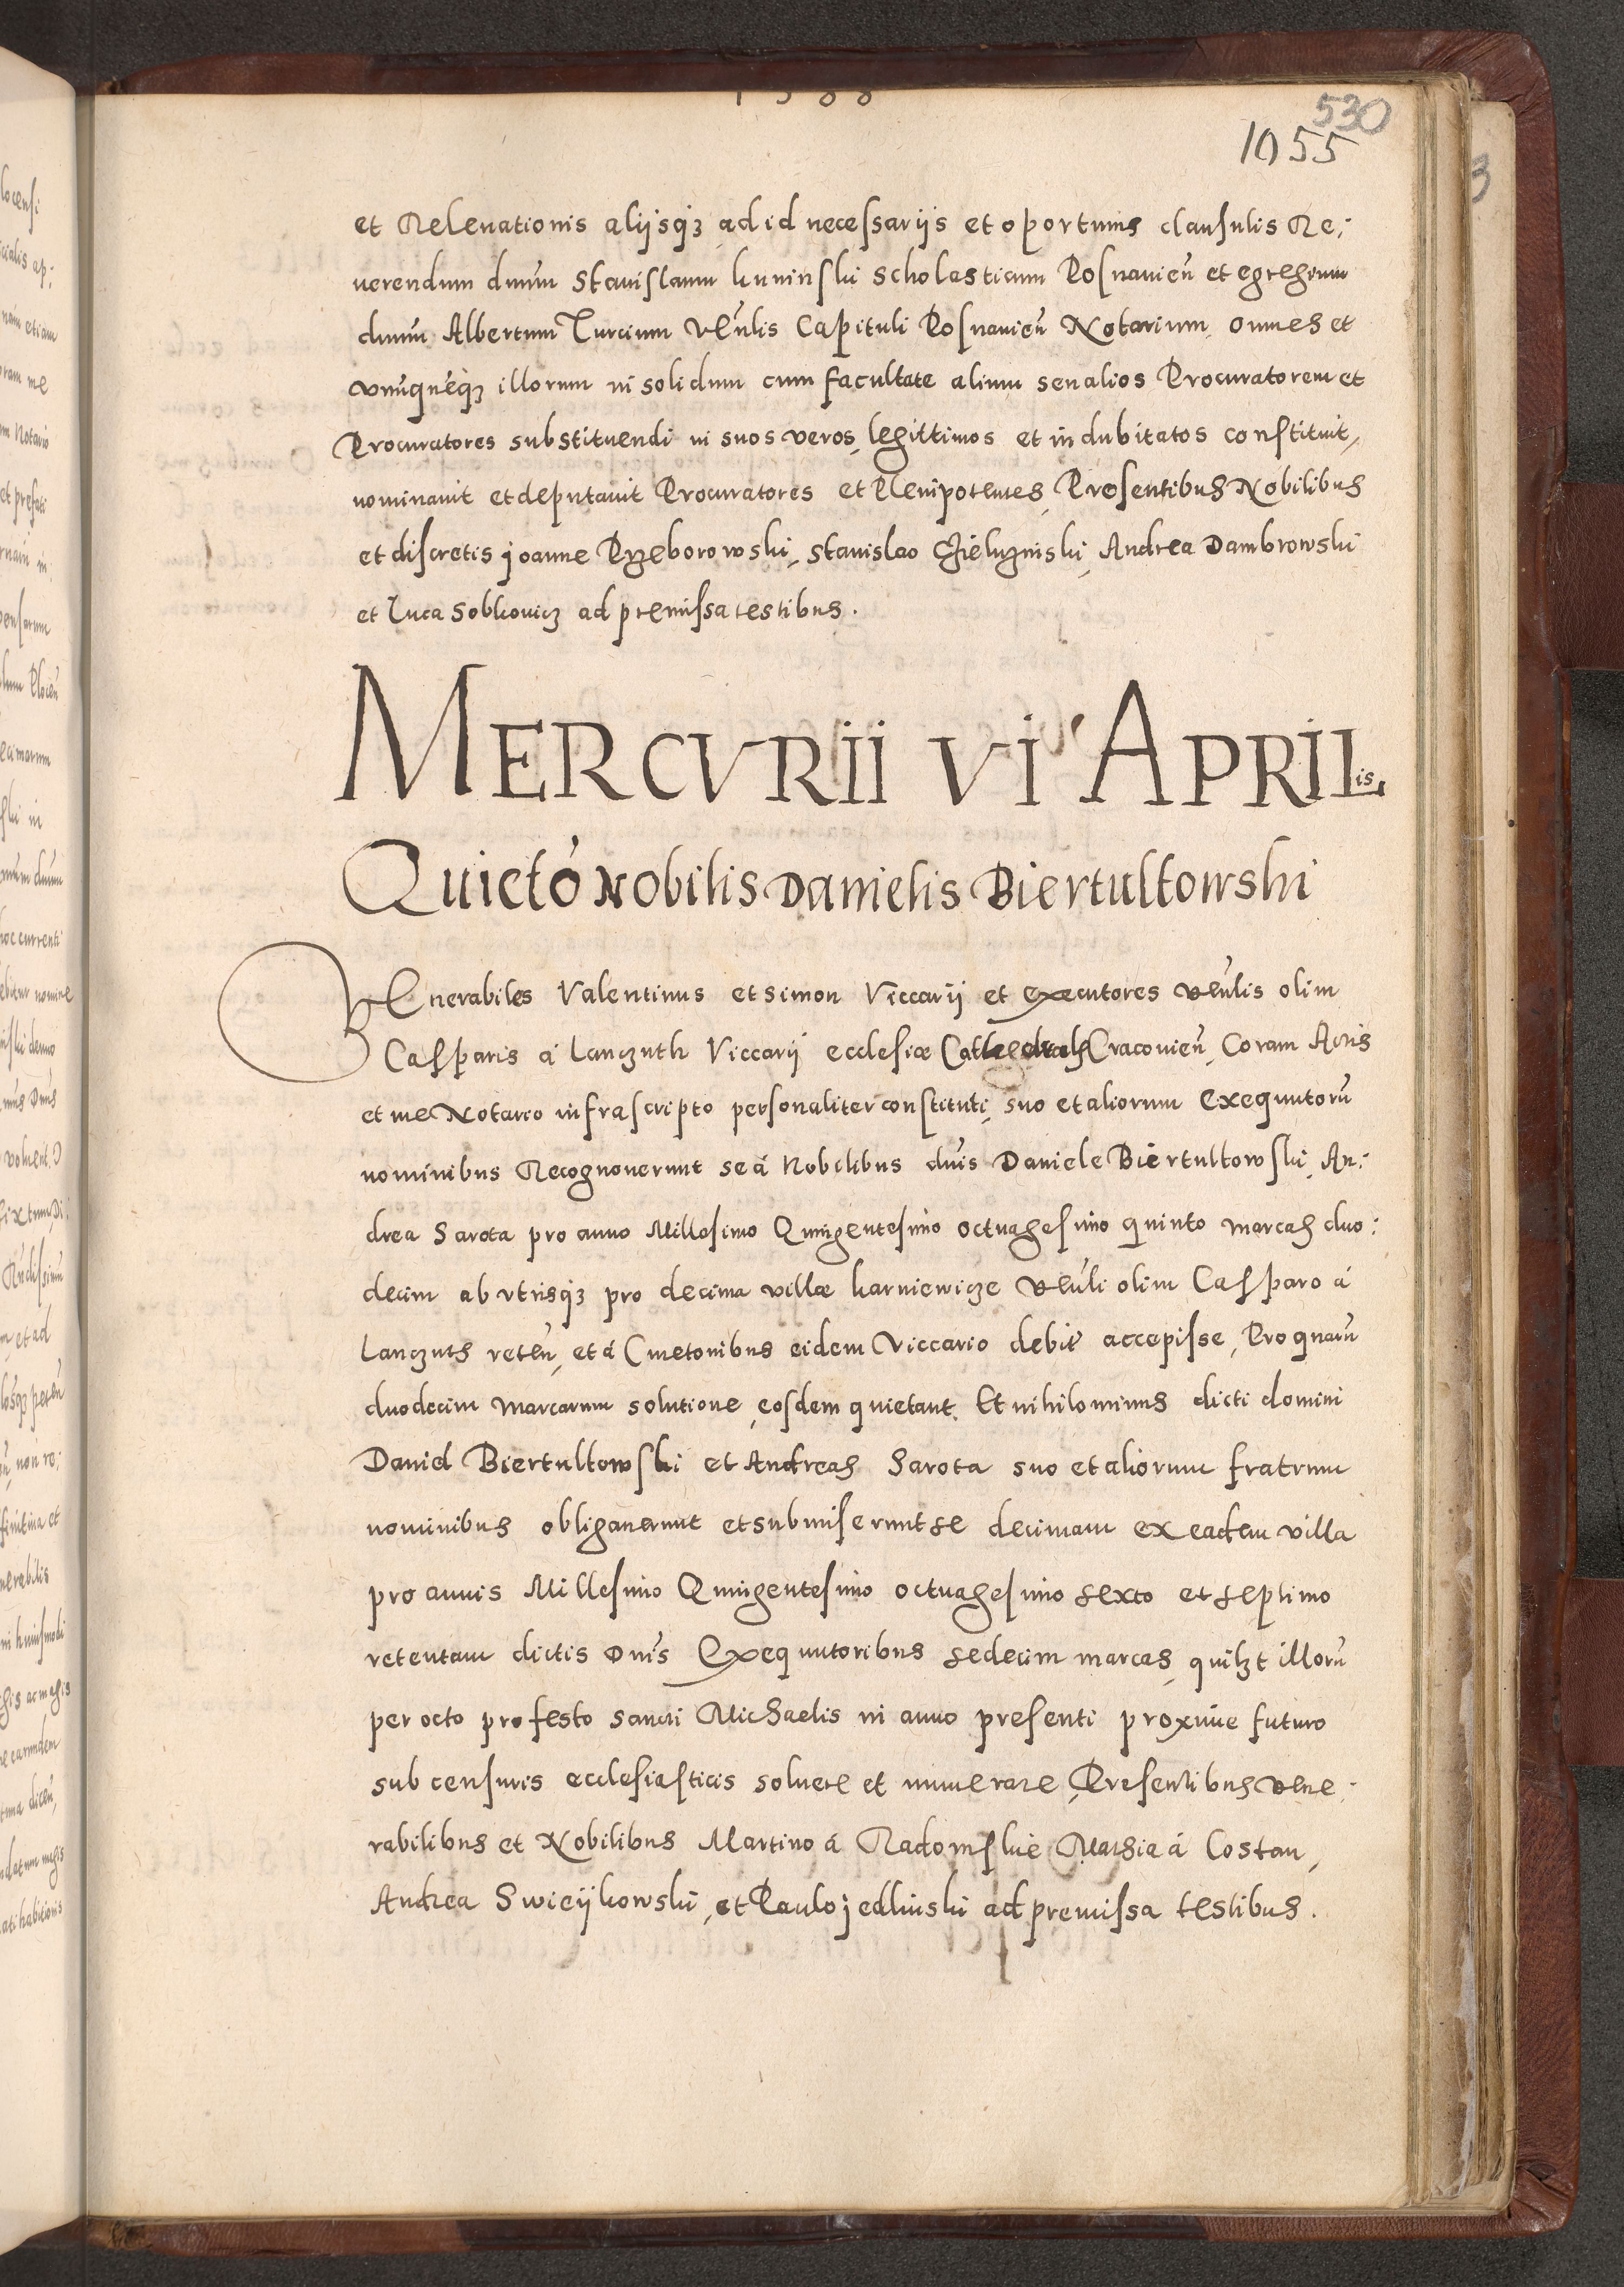 1588
530
1055
et Releuationis alijsqz ad id necessarijs et oportunis clausulis Re:
uerendum dnum Stanislaum kuninski scholasticum Posnanien et egregium
dnum Albertum Turcium venlis Capituli Posnanien Notarium, omnes et
vnumqueqz illorum in solidum cum facultate alium seu alios Procuratorem et
Procuratores substituendi in suos veros, legittimos et indubitatos constituit,
nominauit et deputauit Procuratores et Plenipotentes, Presentibus Nobilibus
et discretis joanne Przeborowski, Stanislao, Andrea Dambrowski
et Luca Sobkouicz ad premissa testibus.
MERCVRII VI APRILis.
Quictó Nobilis Danielis Biertultowski
VEnerabiles Valentinus et Simon Viccarij et executores venlis olim
Casparis á Lanczuth Viccarij ecclesiæ Cathedralis Cracouien, Coram Actis
et me Notario infrascripto personaliter constituti, suo et aliorum exequutorū
nominibus Recognouerunt se á Nobilibus dnis Daniele Biertultowski, An:
drea Sarota pro anno Millesimo Quingentesimo octuagesimo quinto marcas duo:
decim ab vtrisqz pro decima villæ karniewicze venli olim Casparo á
Lanczuth reten, et á Cmetonibus eidem Viccario debit accepisse, Pro quarū
duodecim marcarum solutione, eosdem quietant. Et nihilominus dicti domini
Daniel Biertultowski et Andreas Sarota suo et aliorum fratrum
nominibus obligauerunt et submiserunt se decimam ex eadem villa
pro annis Millesimo Quingentesimo octuagesimo sexto et septimo
retentam dictis Dnis Exequutoribus sedecim marcas, quilzt illorū
per octo pro festo sancti Michaelis in anno presenti proxime futuro
sub censuris ecclesiasticis soluere et numerare, Presentibus vene:
rabilibus et Nobilibus Martino á Radomskie Mathia á Costan,
Andrea Swieijkowski, et Paulo jedlinski ad premissa testibus.